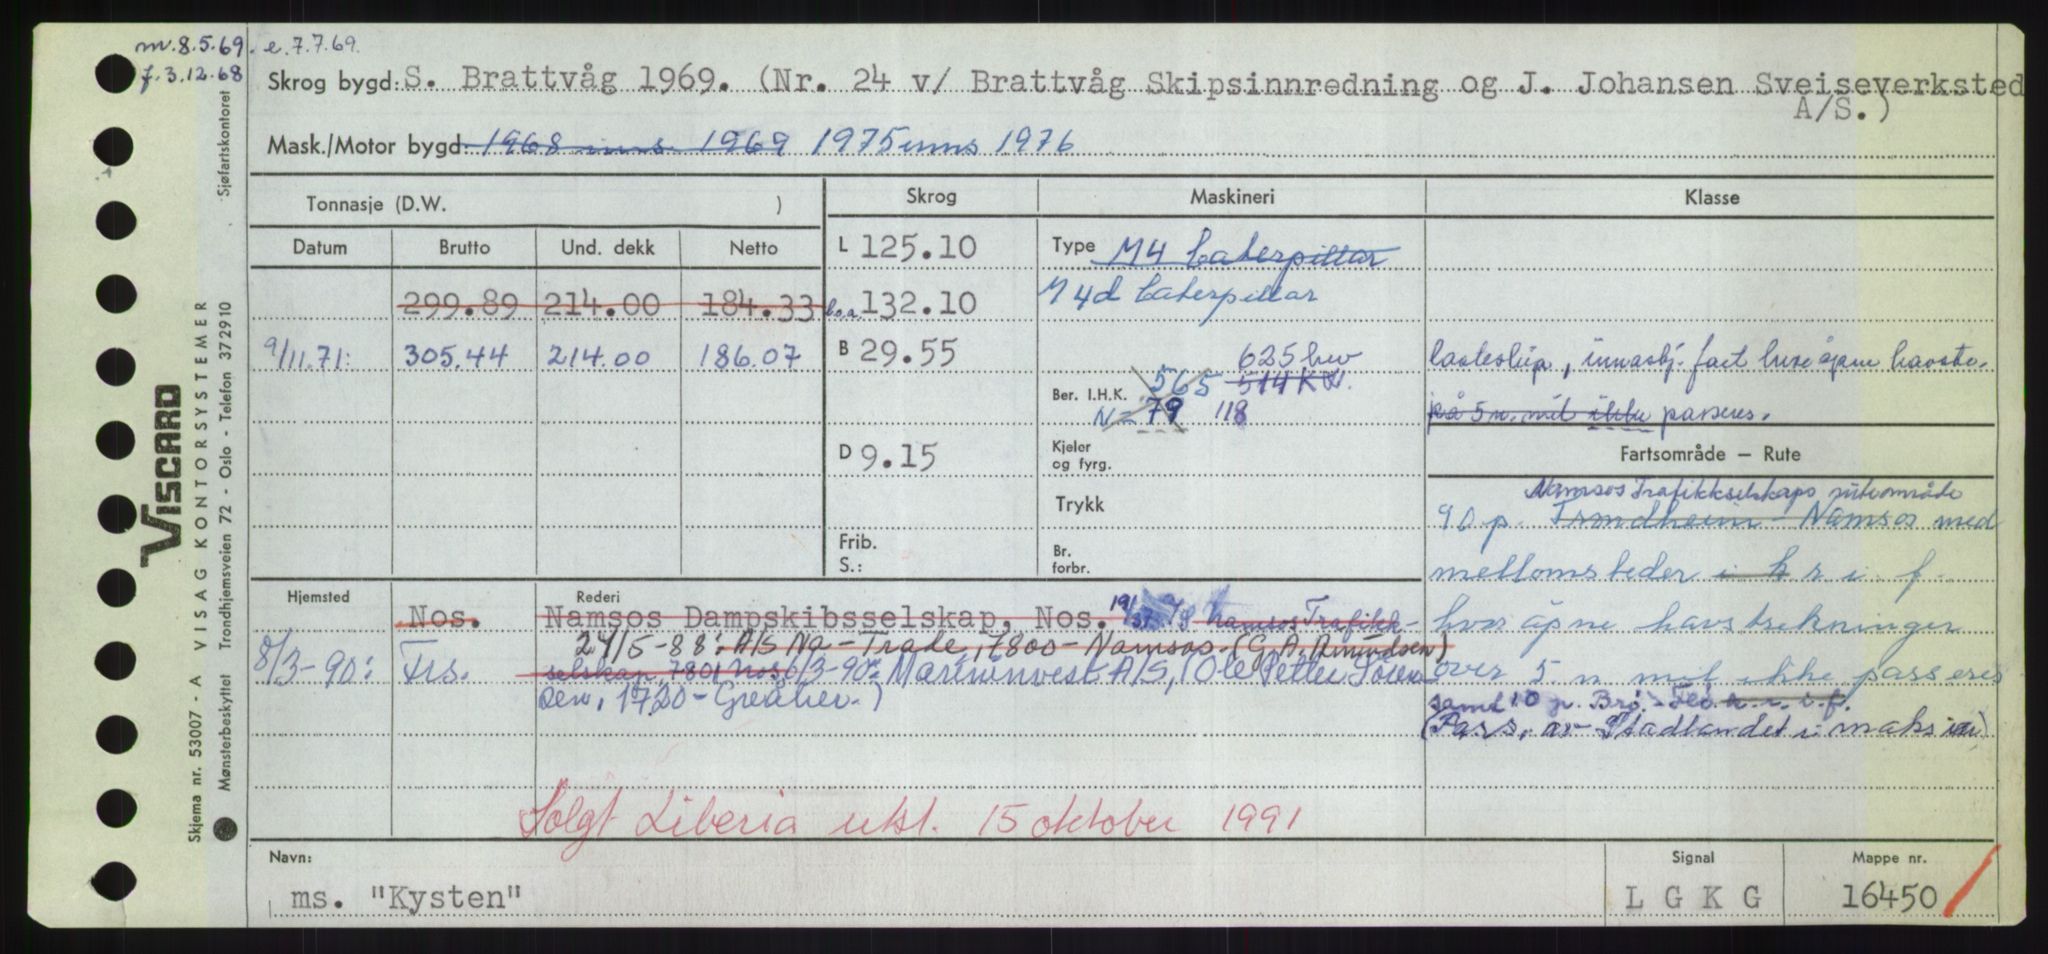 m. 8.5.69. e. 7.7.69.
f. 3.12.68
Skrog bygd: S. Brattvåg 1969. (Nr. 24 v/ Brattvåg Skipsinnredning og J. Johansen Sveiseverksted
A/S.)
Mask./Motor bygd: 1968 inns. 1969 1975 inns 1976
Tonnasje (D.W. )
Skrog
Maskineri
Klasse
Datum
Brutto
Und. dekk
Netto
L 125.10
Type M4 Caterpillar
299.89 214.00 184.33
l.o.a. 132.10
M 4d Caterpillar
9/11.71: 305.44 214.00 186.07
B 29.55
625 hev
lasteskip, innasbj. fart hvor åpne havstr.
Ber. I.H.K. 565 514 KW.
N = 79 118
på 5 n. mil ikke passeres.
D 9.15
Kjeler
og fyrg.
Fartsområde — Rute
Trykk
Namsos Trafikkselskaps ruteområde
90 p. Trondheim - Namsos med
Frib.
S.:
Br.
forbr.
mellomsteder i k r i. f.
Hjemsted
Rederi
Nos. Namsos Dampskibsselskap, Nos. A/S Namsos Trafikk-
hvor åpne havstrekninger
24/5-88: A/S Na-Trade, 7800-Namsos. (G. A. Amundsen)
8/3-90: Frs. selskap, 7801 Nos. 6/3-90: Marininvest A/S, (Ole Petter Soren
over 5. n mil ikke passeres
sen, 1720-Greåker.)
samt 10 p. Brø.-Flø. k. r. i. f.
(Pass. av Stadlandet i maks
Solgt Liberia utst. 15 oktober 1991
Navn:
ms. "Kysten"
Signal
L G K G
Mappe nr.
16450
VISCARD
Skjema nr. 53007 - A VISAG KONTORSYSTEMER
Mønsterbeskyttet Trondhjemsveien 72 - Oslo - Telefon 372910 Sjøfartskontoret